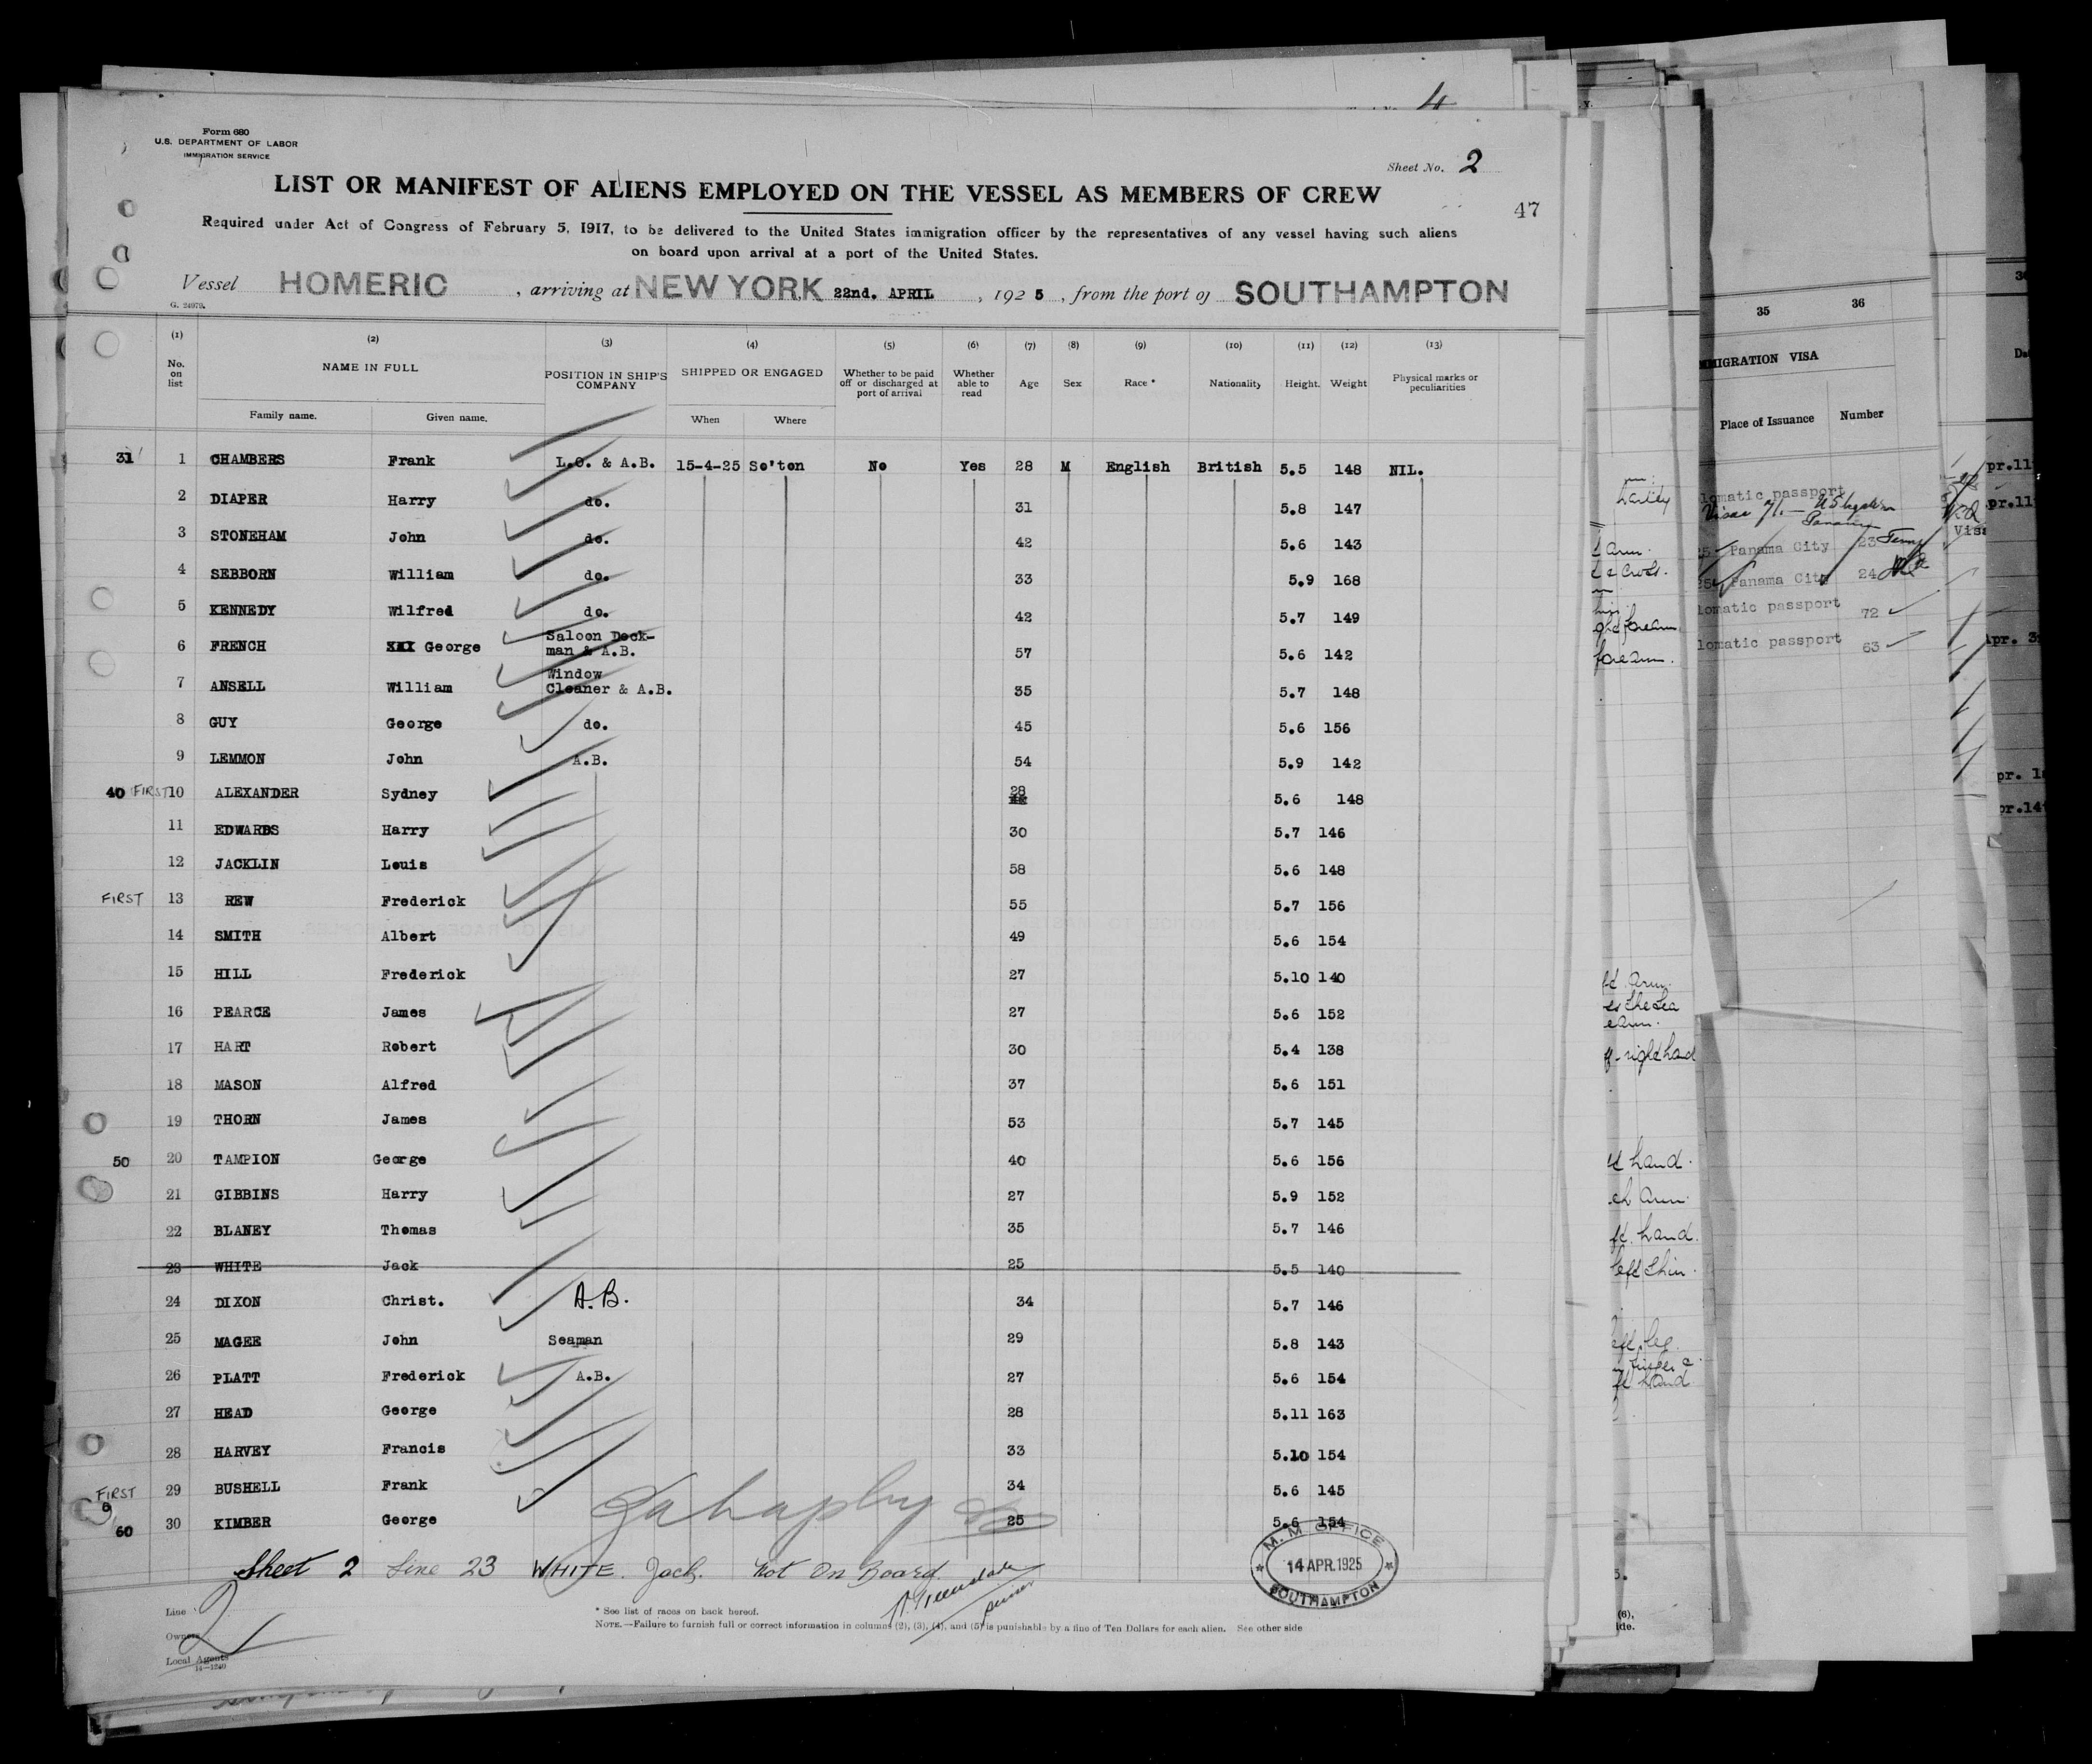 4
Form 680
U.S. DEPARTMENT OF LABOR
IMMIGRATION SERVICE
Sheet No. 2
LIST OR MANIFEST OF ALIENS EMPLOYED ON THE VESSEL AS MEMBERS OF CREW
47
Required under Act of Congress of February 5, 1917, to be delivered to the United States immigration officer by the representatives of any vessel having such aliens
on board upon arrival at a port of the United States.
Vessel HOMERIC, arriving at NEW YORK 22nd. APRIL, 1925, from the port of SOUTHAMPTON
G. 24979.
(1) (2) (3) (4) (5) (6) (7) (8) (9) (10) (11) (12) (13)
No. on list NAME IN FULL POSITION IN SHIP'S COMPANY SHIPPED OR ENGAGED Whether to be paid off or discharged at port of arrival Whether able to read Age Sex Race * Nationality Height. Weight Physical marks or peculiarities
Family name. Given name. When Where
31 1 CHAMBERS Frank L.O. & A.B. 15-4-25 So'ton No Yes 28 M English British 5.5 148 NIL.
2 DIAPER Harry do. 31 5.8 147
3 STONEHAM John do. 42 5.6 143
4 SEBBORN William do. 33 5.9 168
5 KENNEDY Wilfred do. 42 5.7 149
6 FRENCH XXX George Saloon Deck-man & A.B. 57 5.6 142
7 ANSELL William Window Cleaner & A.B. 35 5.7 148
8 GUY George do. 45 5.6 156
9 LEMMON John A.B. 54 5.9 142
40 FIRST 10 ALEXANDER Sydney 28 5.6 148
11 EDWARDS Harry 30 5.7 146
12 JACKLIN Louis 58 5.6 148
FIRST 13 REW Frederick 55 5.7 156
14 SMITH Albert 49 5.6 154
15 HILL Frederick 27 5.10 140
16 PEARCE James 27 5.6 152
17 HART Robert 30 5.4 138
18 MASON Alfred 37 5.6 151
19 THORN James 53 5.7 145
50 20 TAMPION George 40 5.6 156
21 GIBBINS Harry 27 5.9 152
22 BLANEY Thomas 35 5.7 146
23 WHITE Jack 25 5.5 140
24 DIXON Christ. A.B. 34 5.7 146
25 MAGEE John Seaman 29 5.8 143
26 PLATT Frederick A.B. 27 5.6 154
27 HEAD George 28 5.11 163
28 HARVEY Francis 33 5.10 154
FIRST 29 BUSHELL Frank 34 5.6 145
60 30 KIMBER George 25 5.6 154
Sheet 2 Line 23 WHITE. Jack. Not On Board
M. M OFFICE
14 APR. 1925
SOUTHAMPTON
Line
Owners
Local Agents
14-1240
* See list of races on back hereof.
NOTE.—Failure to furnish full or correct information in columns (2), (3), (4), and (5) is punishable by a fine of Ten Dollars for each alien. See other side
35 36
IMMIGRATION VISA
Place of Issuance Number
lomatic passport
Panama City 23
Panama City 24
lomatic passport 72
lomatic passport 63
pr.11
pr.11
Apr. 3
pr. 1
pr.14
arm.
forearm.
right hand
hand.
arm.
hand.
left shin.
left leg
hand